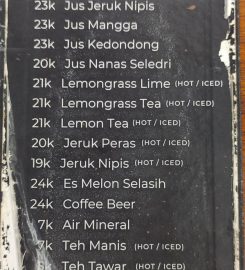 23k Jus Jeruk Nipis
23k Jus Mangga
23k Jus Kedondong
20k Jus Nanas Seledri
21k Lemongrass Lime (HOT / ICED)
21k Lemongrass Tea (HOT / ICED)
21k Lemon Tea (HOT / ICED)
20k Jeruk Peras (HOT / ICED)
19k Jeruk Nipis (HOT / ICED)
24k Es Melon Selasih
24k Coffee Beer
7k Air Mineral
7k Teh Manis (HOT / ICED)
Teh Tawar (HOT / ICED)